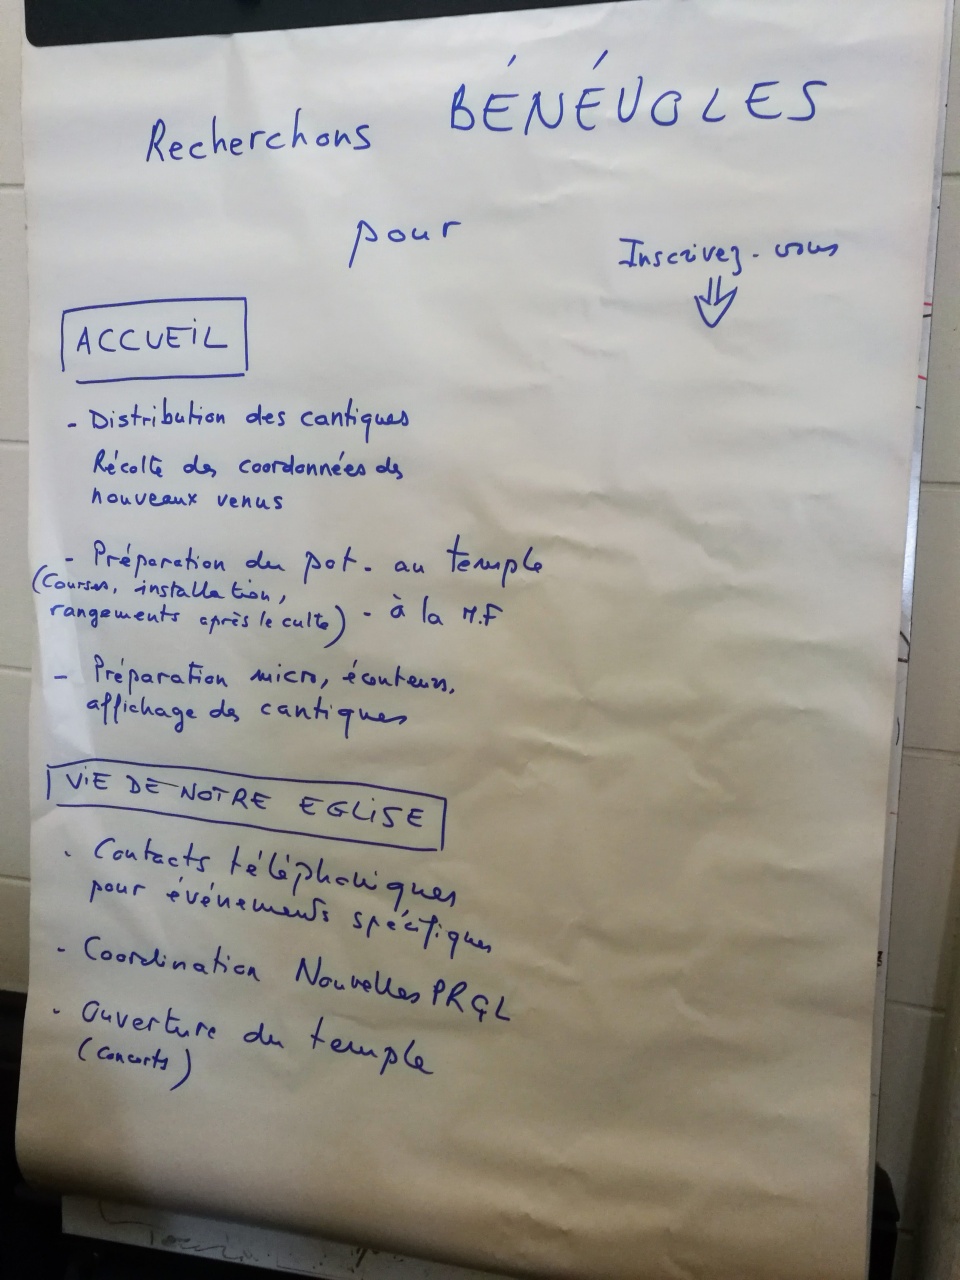 Recherchons BÉNÉVOLES
pour
Inscrivez-vous
ACCUEIL
- Distribution des cantiques
Récolte des coordonnées des
nouveaux venus
- Préparation du pot - au temple
(Courses, installation,
rangements après le culte) - à la M.F
- Préparation micro, écouteurs,
affichage des cantiques
VIE DE NOTRE EGLISE
- Contacts téléphoniques
pour événements spécifiques
- Coordination Nouvelles PRGL
- Ouverture du temple
(concerts)